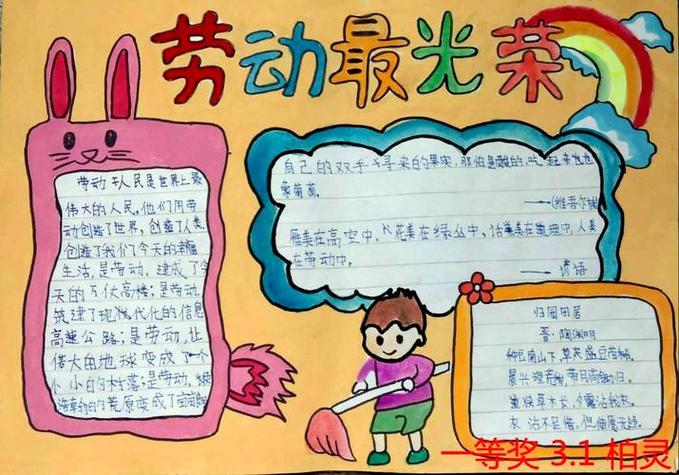 劳动最光荣
劳动人民是世界上最
伟大的人民,他们用劳
动创造了世界,创造了人类,
创造了我们今天的幸福
生活,是劳动,建成了今
天的万丈高楼;是劳动,
筑建了现代化的信息
高速公路;是劳动,让
偌大的地球变成了一个
小小的村落;是劳动,使
的荒原变成了
自己的双手寻来的果实,那怕是酸的,吃起来也
象葡萄。
——(维吾尔族)
雁美在高空中,花美在绿丛中,话美在道理中,人美
在劳动中。
——谚语
归园田居
晋·陶渊明
种豆南山下,草茂盛豆苗稀。
晨兴理荒秽,带月荷锄归。
草木长,夕露沾我衣。
衣沾不足惜,但使愿无违。
一等奖 3.1 柏灵